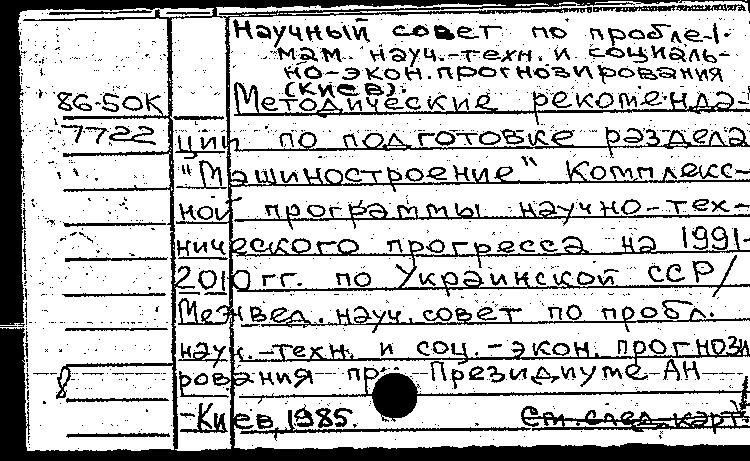 Научный совет по пробле-
мам науч.-техн. и социаль-
но-экон. прогнозирования
(Киев).
86-50К
7722
Методические рекоменда-
ции по подготовке раздела
"Машиностроение" Комплекс-
ной программы научно-тех-
нического прогресса на 1991-
2010 гг. по Украинской ССР/
Межвед. науч. совет по пробл.
науч.-техн. и соц.-экон. прогнози
рования при Президиуме АН
-Киев, 1985.
См. след. карт.